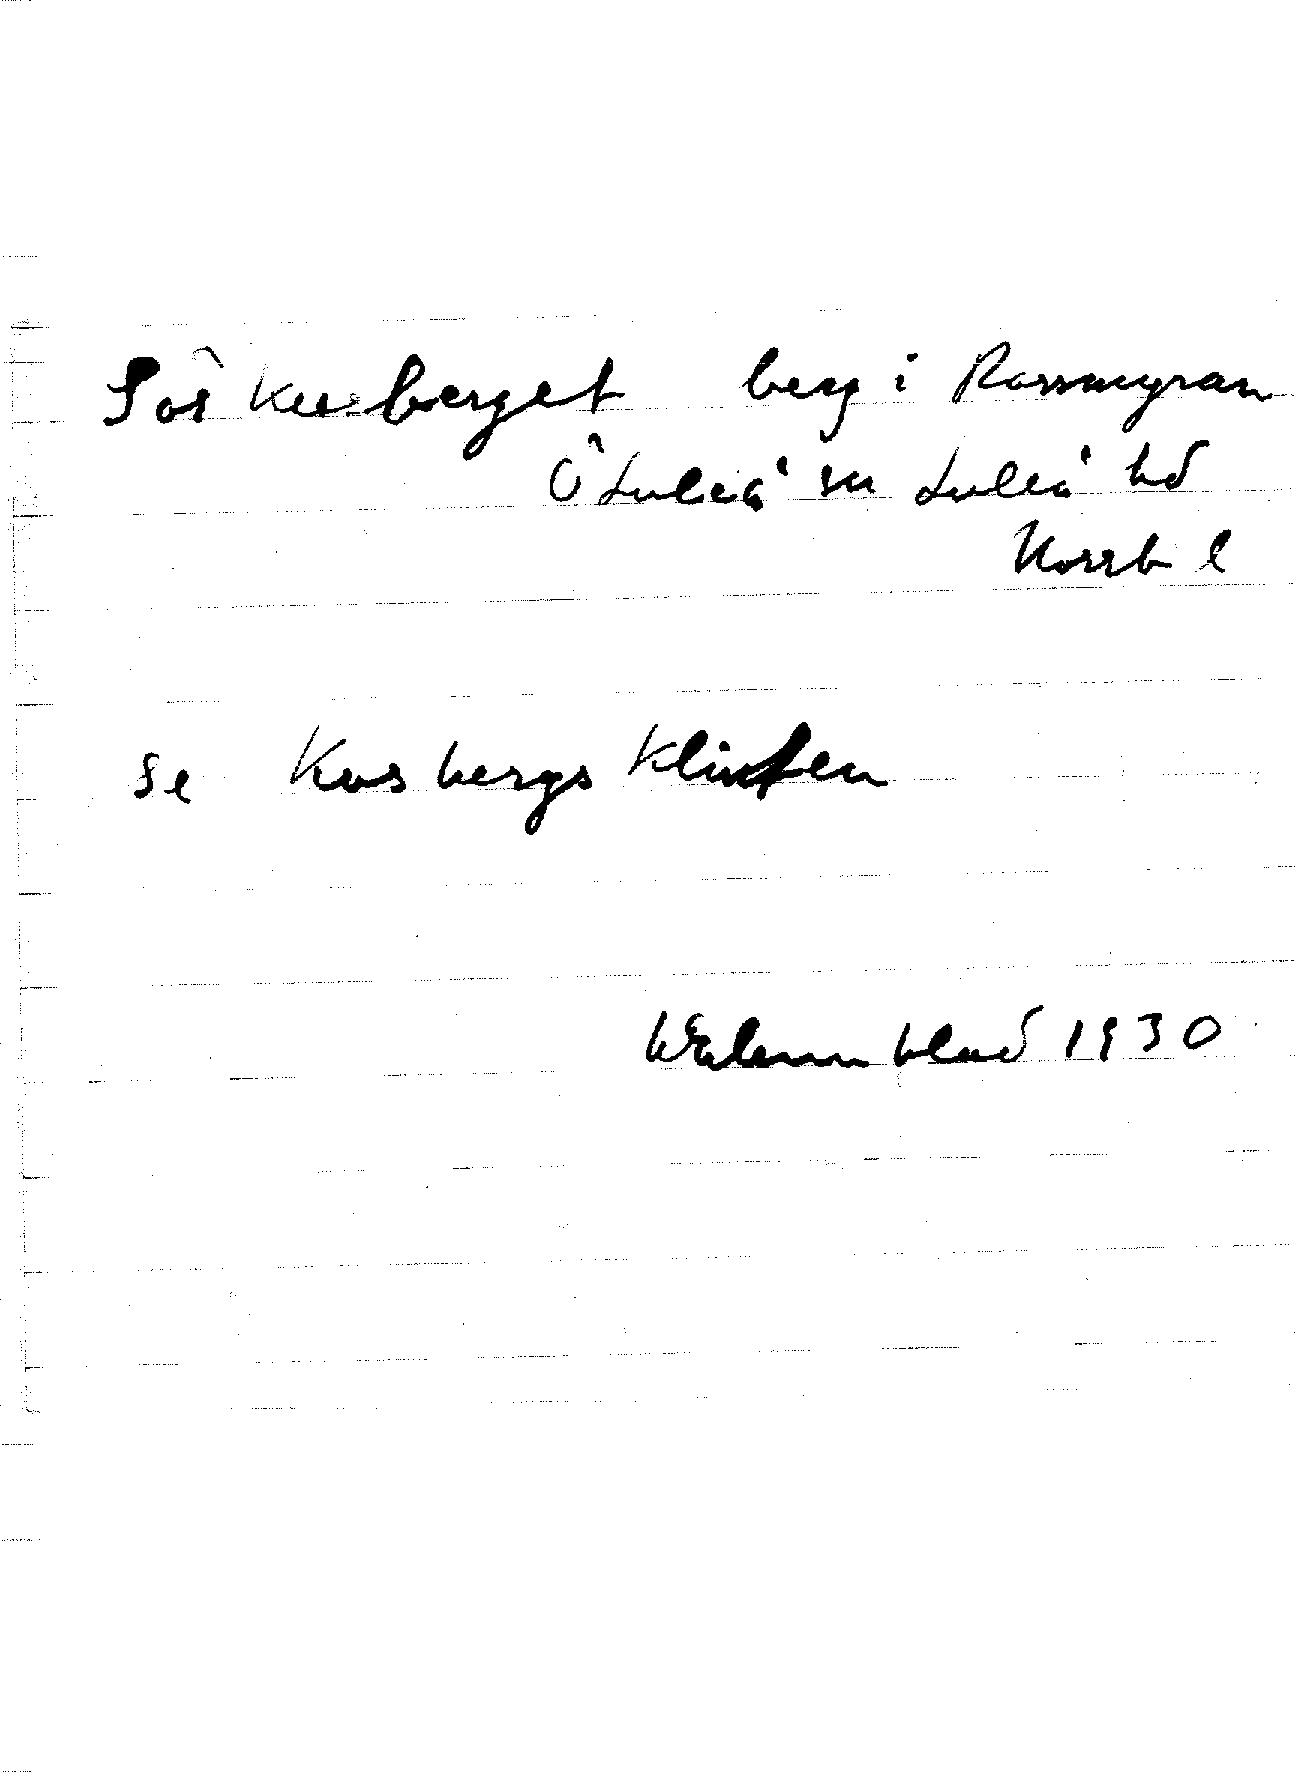 Sör Kusberget berg i Rossmyran
Ö Luleå sn Luleå hd
Norrb l
se Kusbergsklinten
Walemblad 1930